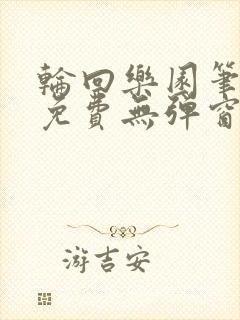 輪回樂園筆
免費無彈窗
游吉安